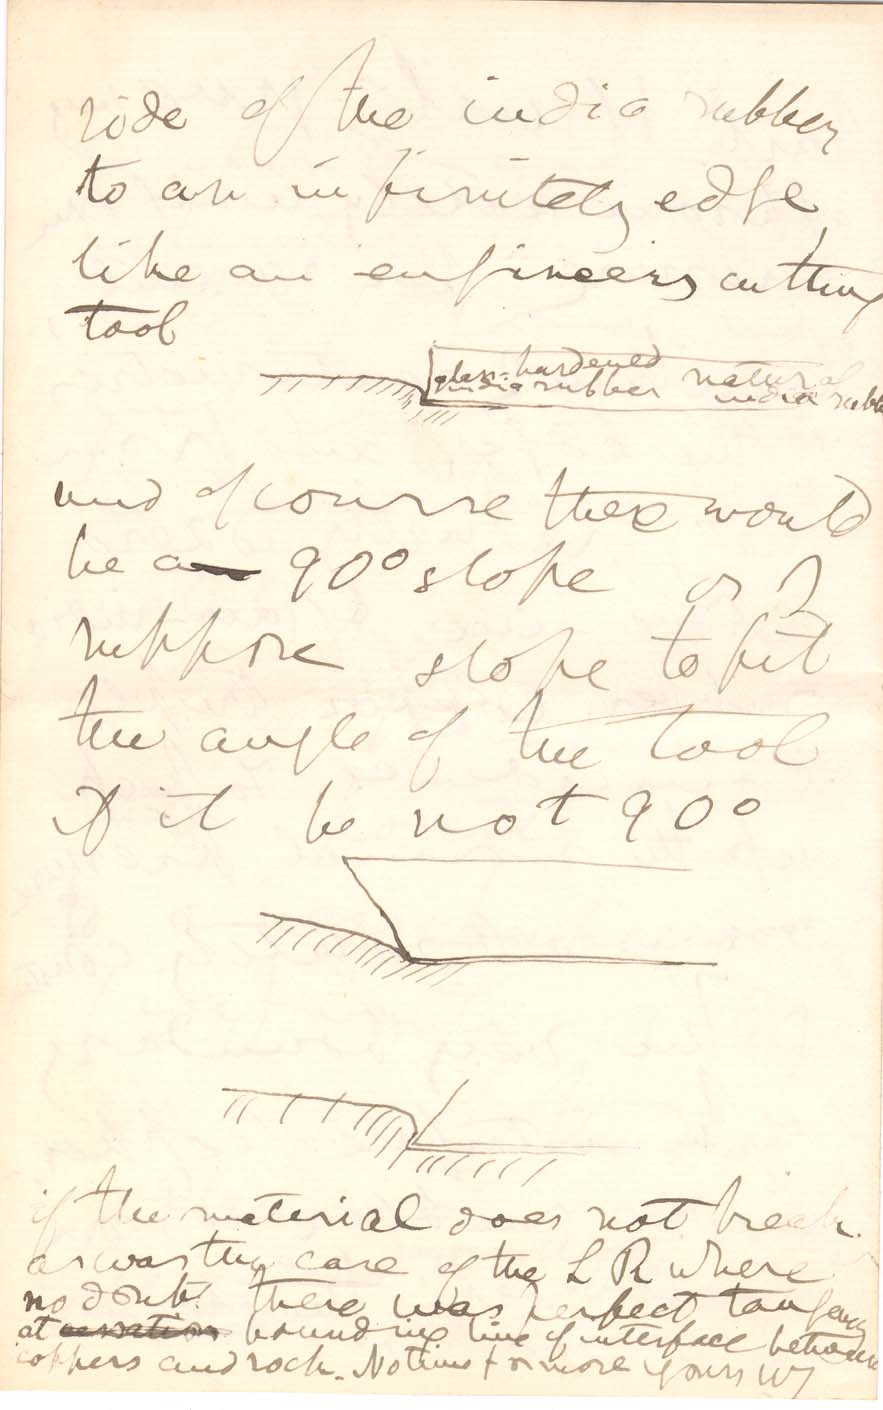 side of the india rubber
to an infinitely edge
like an engineers cutting
tool
glass-hardened natural
india rubber india rubb
and of course there would
be a 90° slope or I
suppose slope to fit
the angle of the tool
if it be not 90°
if the material does not break.
as was the case of the L R where
no doubt there was perfect tangency
at bounding line of interface between
coppers and rock. No time for more yours W